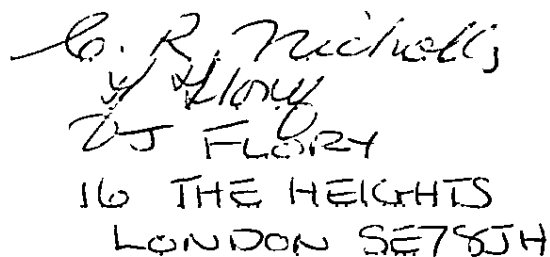 C. R. Nicholls
VJ Flory
VJ FLORY
16 THE HEIGHTS
LONDON SE78JH